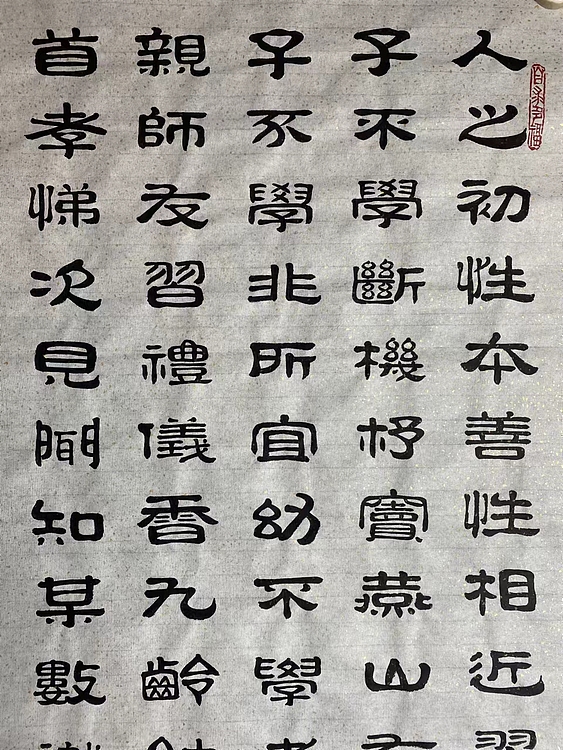 人之初性本善性相近習
子不學斷機杼竇燕山有
子不學非所宜幼不學老
親師友習禮儀香九齡
首孝悌次見聞知某數